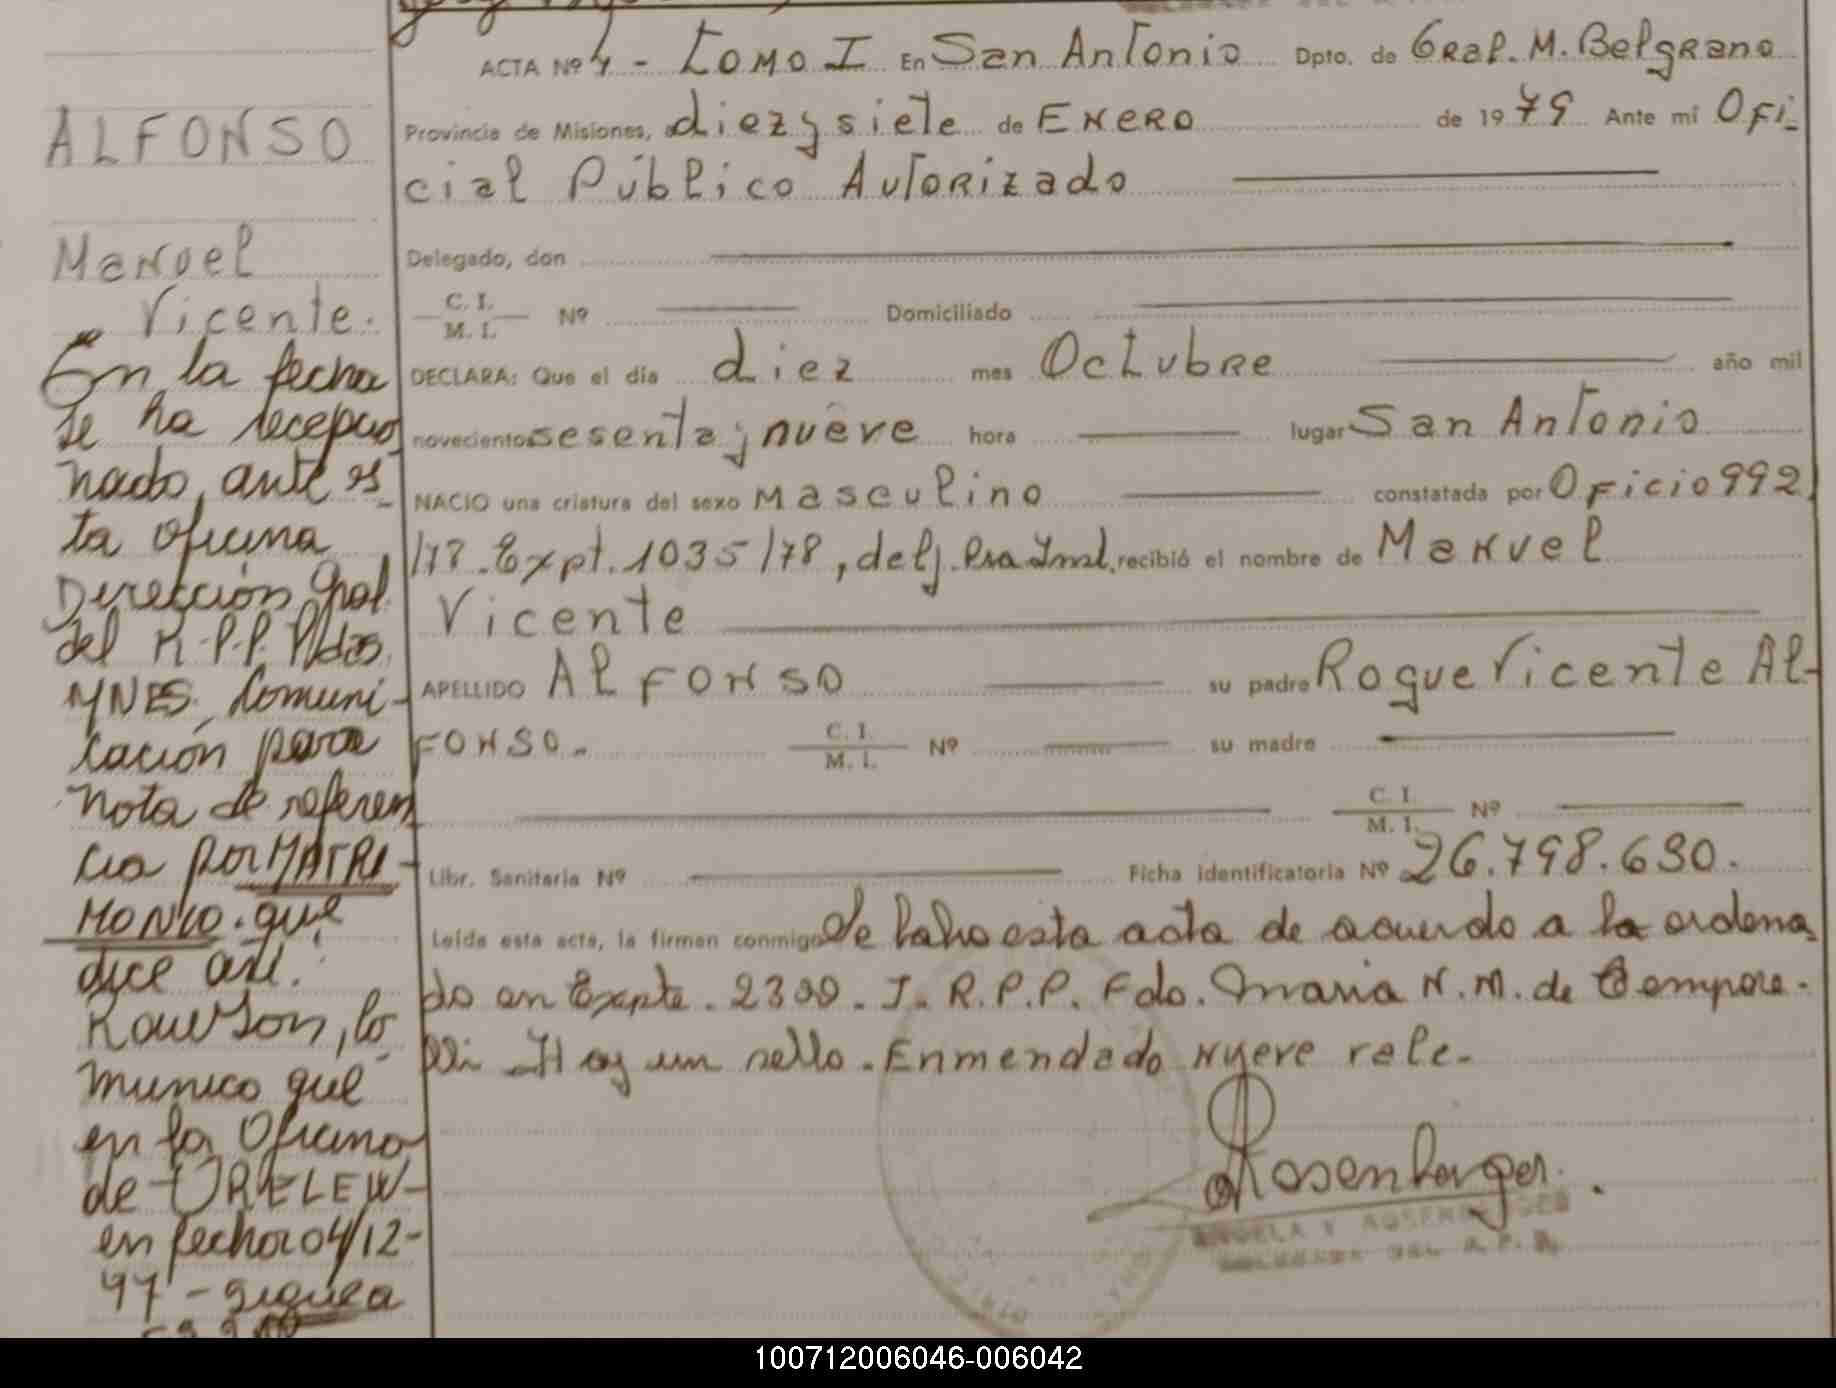 ACTA Nº 4 - Tomo I En San Antonio Dpto. de Gral. M. Belgrano
Provincia de Misiones, a diez y siete de Enero de 1979 Ante mí Ofi-
cial Público Autorizado
Delegado, don
C. I.
M. I. Nº Domiciliado
DECLARA: Que el día diez mes Octubre año mil
novecientos sesenta y nueve hora lugar San Antonio
NACIO una criatura del sexo Masculino constatada por Oficio 992
/78. Expt. 1035/78, del j. recibió el nombre de Manuel
Vicente
APELLIDO Alfonso su padre Roque Vicente Al-
fonso. C. I.
M. I. Nº su madre
C. I.
M. I. Nº
Libr. Sanitaria Nº Ficha identificatoria Nº 26.798.630.
Leída esta acta, la firman conmigo Se labro esta acta de acuerdo a la ordena
do en Expte. 2300. J. R.P.P. Fdo. Maria N. M. de
Hay un sello. Enmendado nueve vale.
Rosenberger.
ALFONSO
Manuel
Vicente.
En la fecha
se ha recepcio
nado, ante es-
ta oficina
Dirección Gral.
del R.P.P. Pdas,
MNES, Comuni-
cación para
nota de referen
cia por MATRI-
MONIO. que
dice así:
Rawson, Co
munico que
en la Oficina
de TRELEW-
en fecha 04/12-
97 - sigue a
100712006046-006042